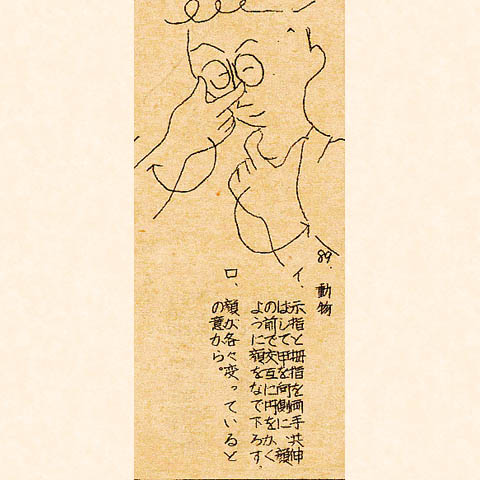 89. 動物
イ、示指と拇指を両手共伸
ばして甲を向側に、顔
の前で交互に円をかく
ように顔をなで下ろす。
ロ、顔が各々変っていると
の意から。